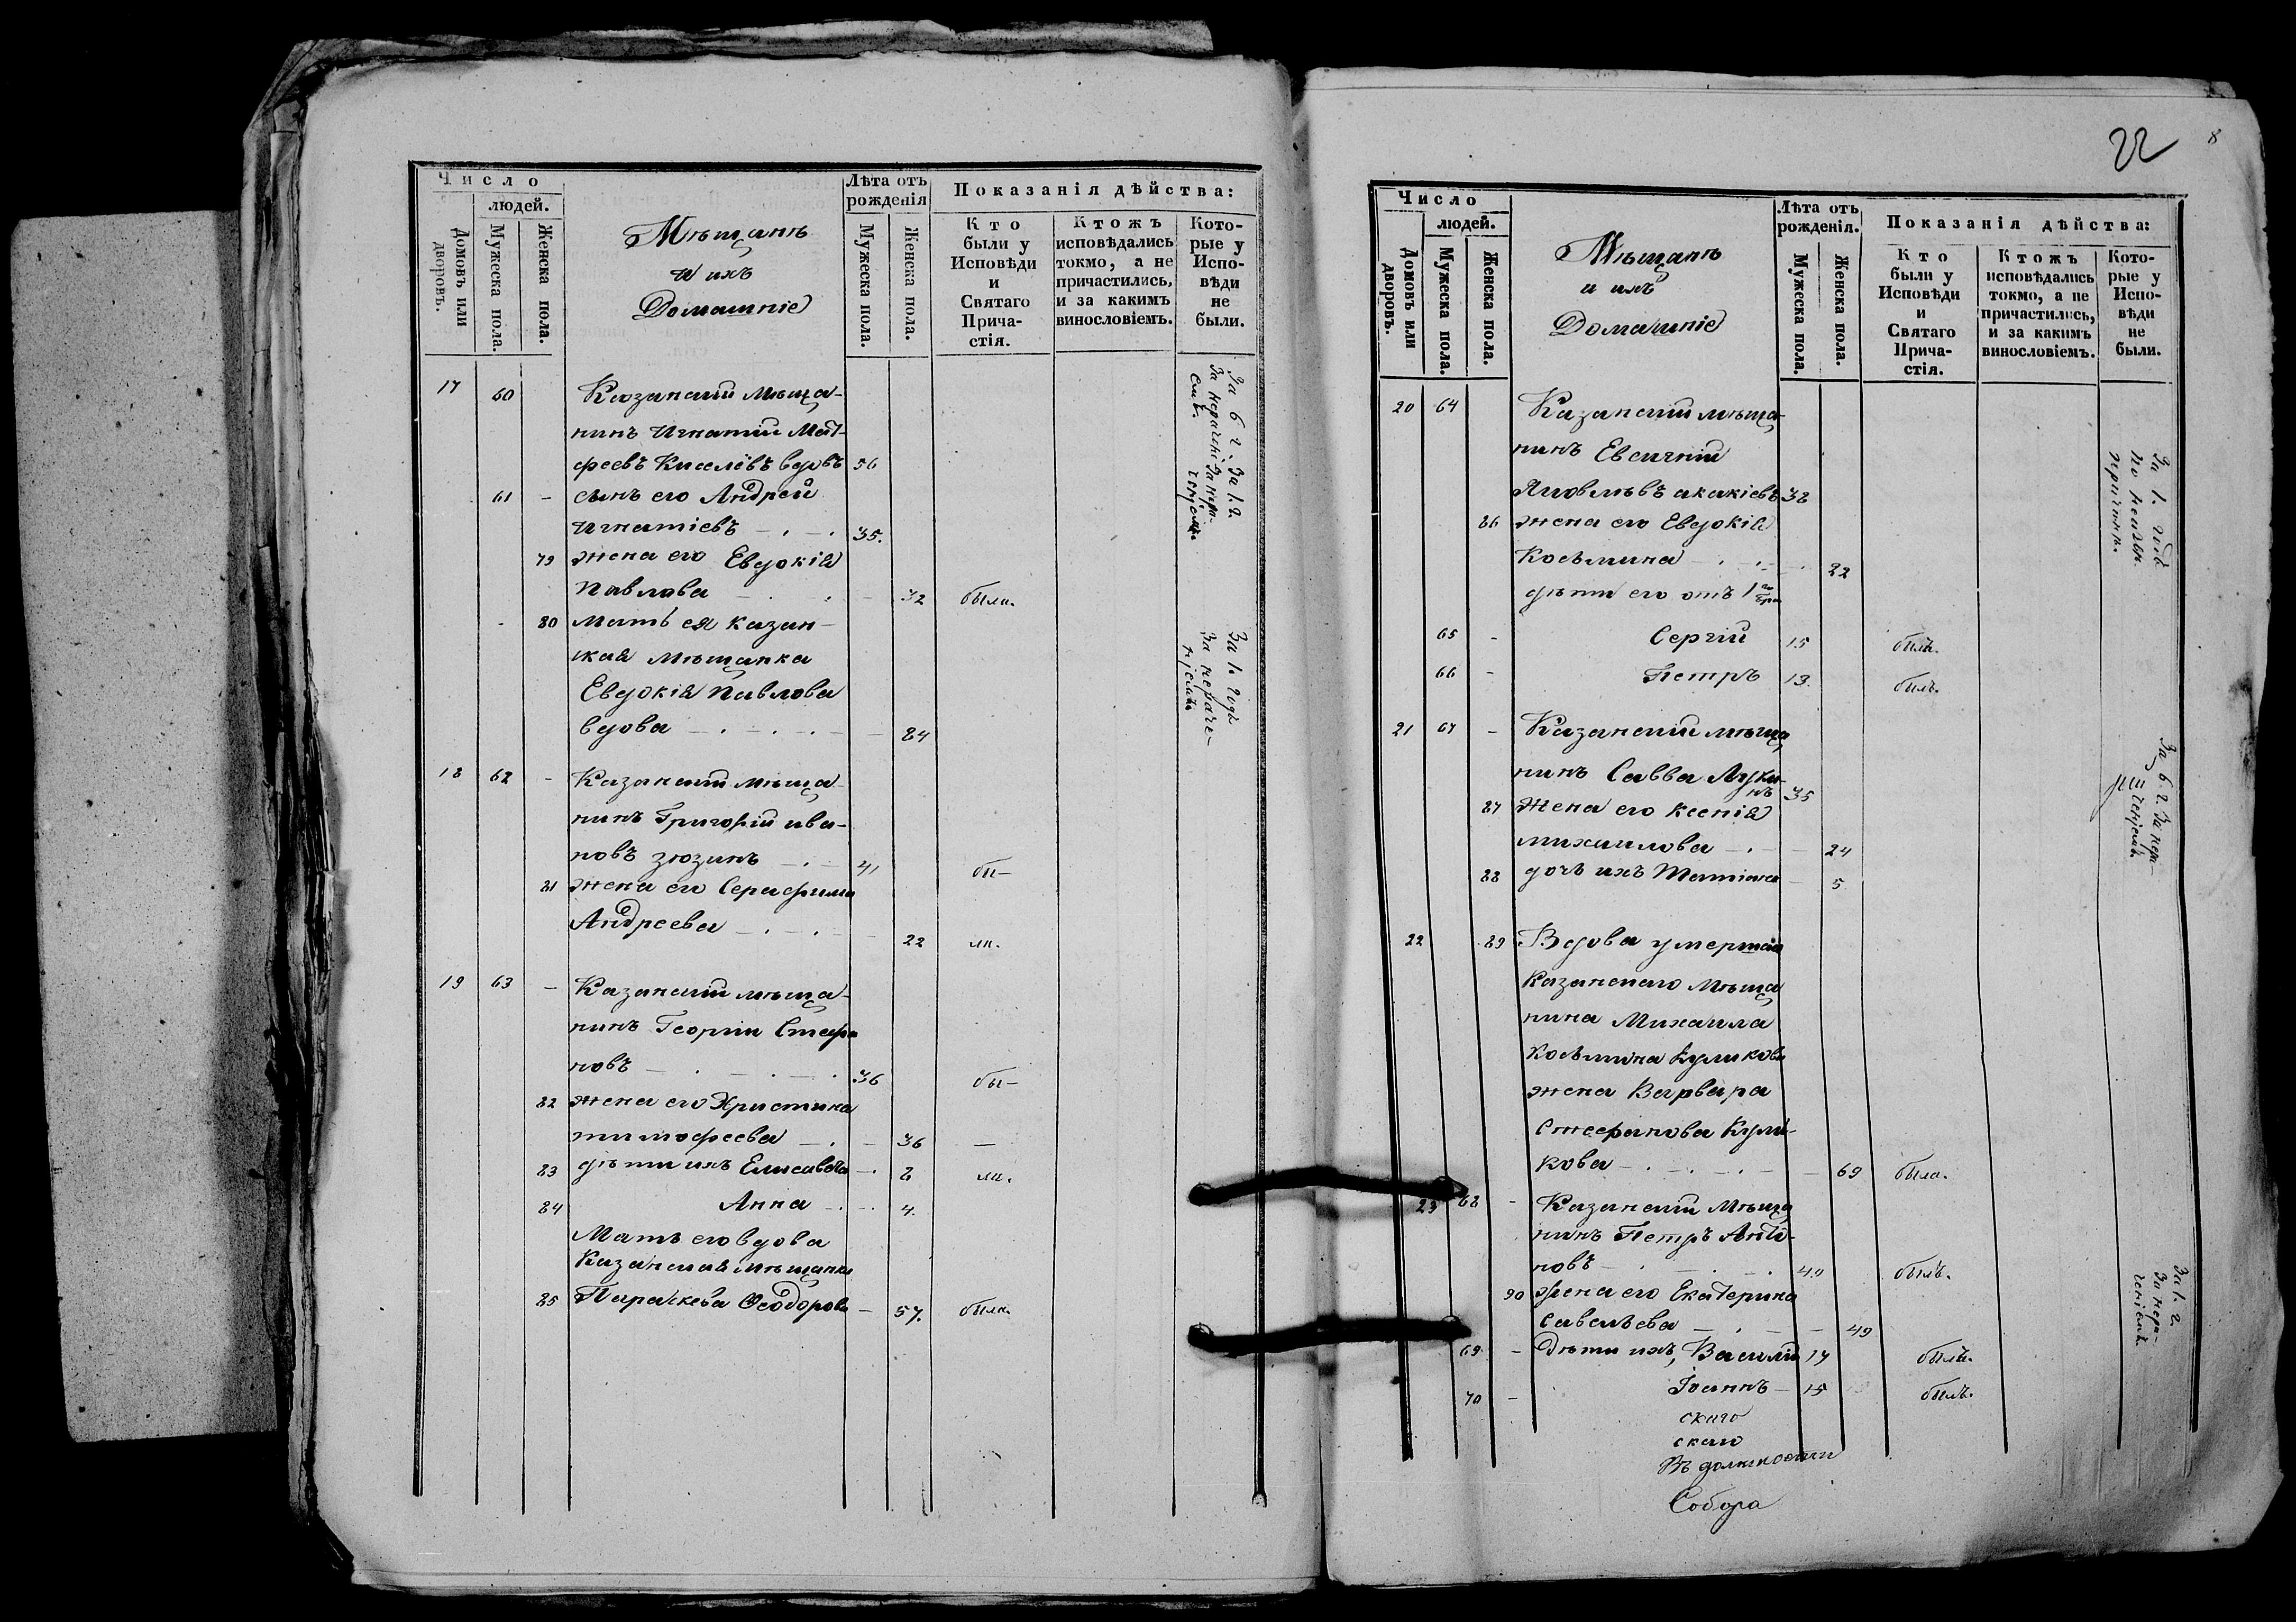 Число
людей.
Домовъ или дворовъ.
Мужеска пола.
Женска пола.
Мѣщанъ
и ихъ
Домашніе
Лѣта отъ рожденія
Мужеска пола.
Женска пола.
Показанія дѣйства:
Кто были у Исповѣди и Святаго Прича-стія.
Ктожъ исповѣдались токмо, а не причастились, и за какимъ винословіемъ.
Кото-рые у Испо-вѣди не были.
17 60 Казанскій мѣща-
нинъ Игнатій Мат-
феевъ Киселёвъ вдовъ 56
61 - сынъ его Андрей
Игнатіевъ 35.
79 жена его Евдокія
Павлова 32 была.
80 Мать ея казан-
ская мѣщанка
Евдокія Павлова
вдова 84
За 1. годъ
За нераче-
ніемъ
18 62 - Казанскій мѣща-
нинъ Григорій ива-
новъ Зюзинъ 41 бы-
81 жена его Серафима
Андреева 22 ли.
19 63 - Казанскій мѣща-
нинъ Георгій Стефа
новъ 36 бы-
82 жена его Христина
тимофеева 36 -
83 дѣти ихъ Елисавета 8 ли.
84 Анна 4.
Мать его вдова
Казанская мѣщанка
85 Параскева Ѳеодорова 57. была.
22
8
Число
людей.
Домовъ или дворовъ.
Мужеска пола.
Женска пола.
Мѣщанъ
и ихъ
Домашніе
Лѣта отъ рожденія.
Мужеска пола.
Женска пола.
Показанія дѣйства:
Кто были у Исповѣди и Святаго Прича-стія.
Ктожъ исповѣдались токмо, а не причастились, и за какимъ винословіемъ.
Кото-рые у Испо-вѣди не были.
20 64 Казанскій мѣща-
нинъ Евгеній
Яковлевъ акакіевъ 38
86 жена его Евдокія
Косьмина 22
дѣти его отъ 1го бра
65 - Сергій 15 былъ.
66 - Петръ 13. былъ.
21 67 - Казанскій мѣща
нинъ Савва Луки-
нъ 35
87 жена его Ксенія
михаилова 24
88 дочь ихъ Татіана 5
22 89 Вдова умершаго
Казанскаго мѣща
нина Михаила
Косьмина Куликова
жена Варвара
Стефанова Кули-
кова 69 была.
23 68 - Казанскій мѣща
нинъ Петръ Анти-
повъ 49 былъ.
90 жена его Екатерина
Савельева 49
За 1. г.
За нера-
ченіемъ.
69 - Дѣти ихъ, Василій 17 былъ.
70 - Іоаннъ 15 былъ.
скаго
скаго
Въ должности
Собора